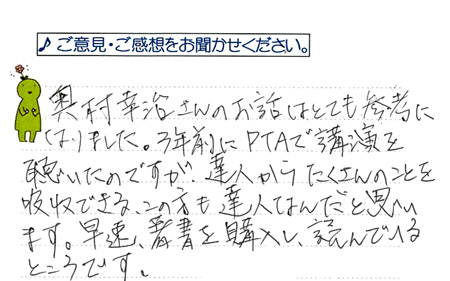 ♪ご意見・ご感想をお聞かせください。
奥村幸治さんのお話はとても参考に
なりました。3年前にPTAで講演を
聴いたのですが、達人からたくさんのことを
吸収できる、この方も達人なんだと思い
ます。早速、著書を購入し、読んでいる
ところです。